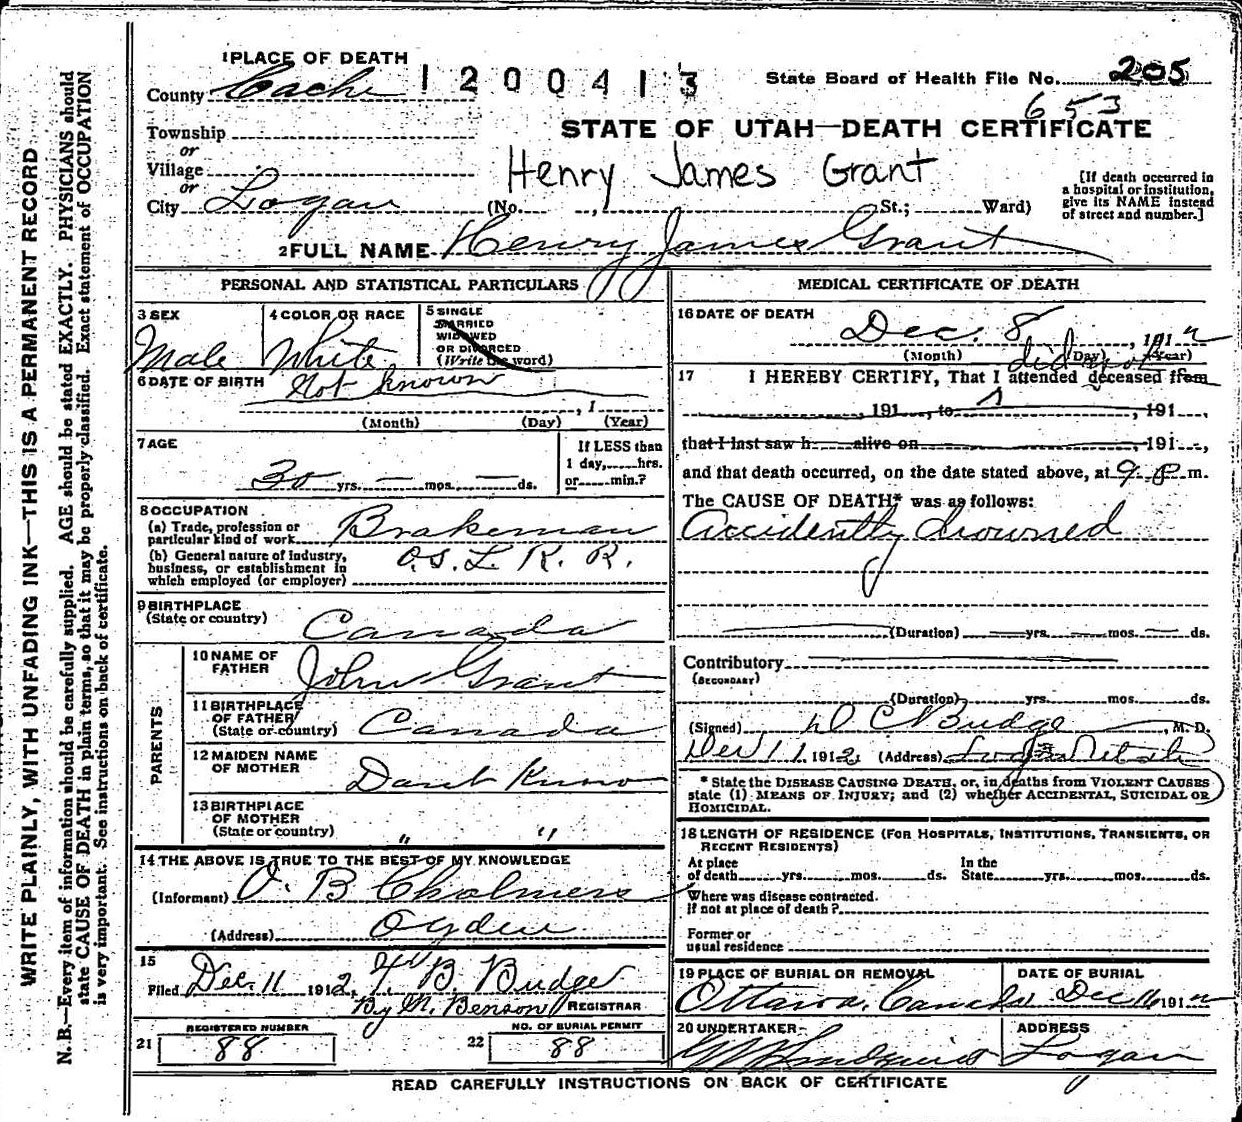 1 PLACE OF DEATH
County Cache 1200413 State Board of Health File No. 205
653
Township
STATE OF UTAH—DEATH CERTIFICATE
or
Village
Henry James Grant
or
City Logan (No. , St.; Ward)
[If death occurred in
a hospital or institution,
give its NAME instead
of street and number.]
2 FULL NAME Henry James Grant
PERSONAL AND STATISTICAL PARTICULARS
3 SEX
Male
4 COLOR OR RACE
White
5 SINGLE
MARRIED
WIDOWED
OR DIVORCED
(Write the word)
6 DATE OF BIRTH Not known
, 1
(Month) (Day) (Year)
7 AGE
30 yrs. — mos. — ds.
If LESS than
1 day, hrs.
or min.?
8 OCCUPATION
(a) Trade, profession or
particular kind of work Brakeman
(b) General nature of industry,
business, or establishment in
which employed (or employer) O.S.L. R. R.
9 BIRTHPLACE
(State or country) Canada
PARENTS
10 NAME OF
FATHER John Grant
11 BIRTHPLACE
OF FATHER
(State or country) Canada
12 MAIDEN NAME
OF MOTHER Don't Know
13 BIRTHPLACE
OF MOTHER
(State or country) " "
14 THE ABOVE IS TRUE TO THE BEST OF MY KNOWLEDGE
(Informant) O. B. Cholmers
(Address) Ogden
15
Filed Dec. 11 1912, B. Budge
By M. Benson REGISTRAR
REGISTERED NUMBER
21 88
NO. OF BURIAL PERMIT
22 88
MEDICAL CERTIFICATE OF DEATH
16 DATE OF DEATH
Dec. 8, 1912
(Month) (Day) (Year)
did not
17 I HEREBY CERTIFY, That I attended deceased from
, 191 , to , 191 ,
that I last saw h alive on , 191 ,
and that death occurred, on the date stated above, at 9 P m.
The CAUSE OF DEATH* was as follows:
Accidently drowned
(Duration) yrs. mos. ds.
Contributory
(SECONDARY)
(Duration) yrs. mos. ds.
(Signed) D C Budge, M. D.
Dec 11 1912 (Address) Logan Utah
* State the DISEASE CAUSING DEATH, or, in deaths from VIOLENT CAUSES
state (1) MEANS OF INJURY; and (2) whether ACCIDENTAL, SUICIDAL OR
HOMICIDAL.
18 LENGTH OF RESIDENCE (FOR HOSPITALS, INSTITUTIONS, TRANSIENTS, OR
RECENT RESIDENTS)
At place
of death yrs. mos. ds.
In the
State yrs. mos. ds.
Where was disease contracted.
if not at place of death?
Former or
usual residence
19 PLACE OF BURIAL OR REMOVAL
Ottawa, Canada
DATE OF BURIAL
Dec 1912
20 UNDERTAKER
ADDRESS
Logan
READ CAREFULLY INSTRUCTIONS ON BACK OF CERTIFICATE
WRITE PLAINLY, WITH UNFADING INK—THIS IS A PERMANENT RECORD
N. B.—Every item of information should be carefully supplied. AGE should be stated EXACTLY. PHYSICIANS should
state CAUSE OF DEATH in plain terms, so that it may be properly classified. Exact statement of OCCUPATION
is very important. See instructions on back of certificate.